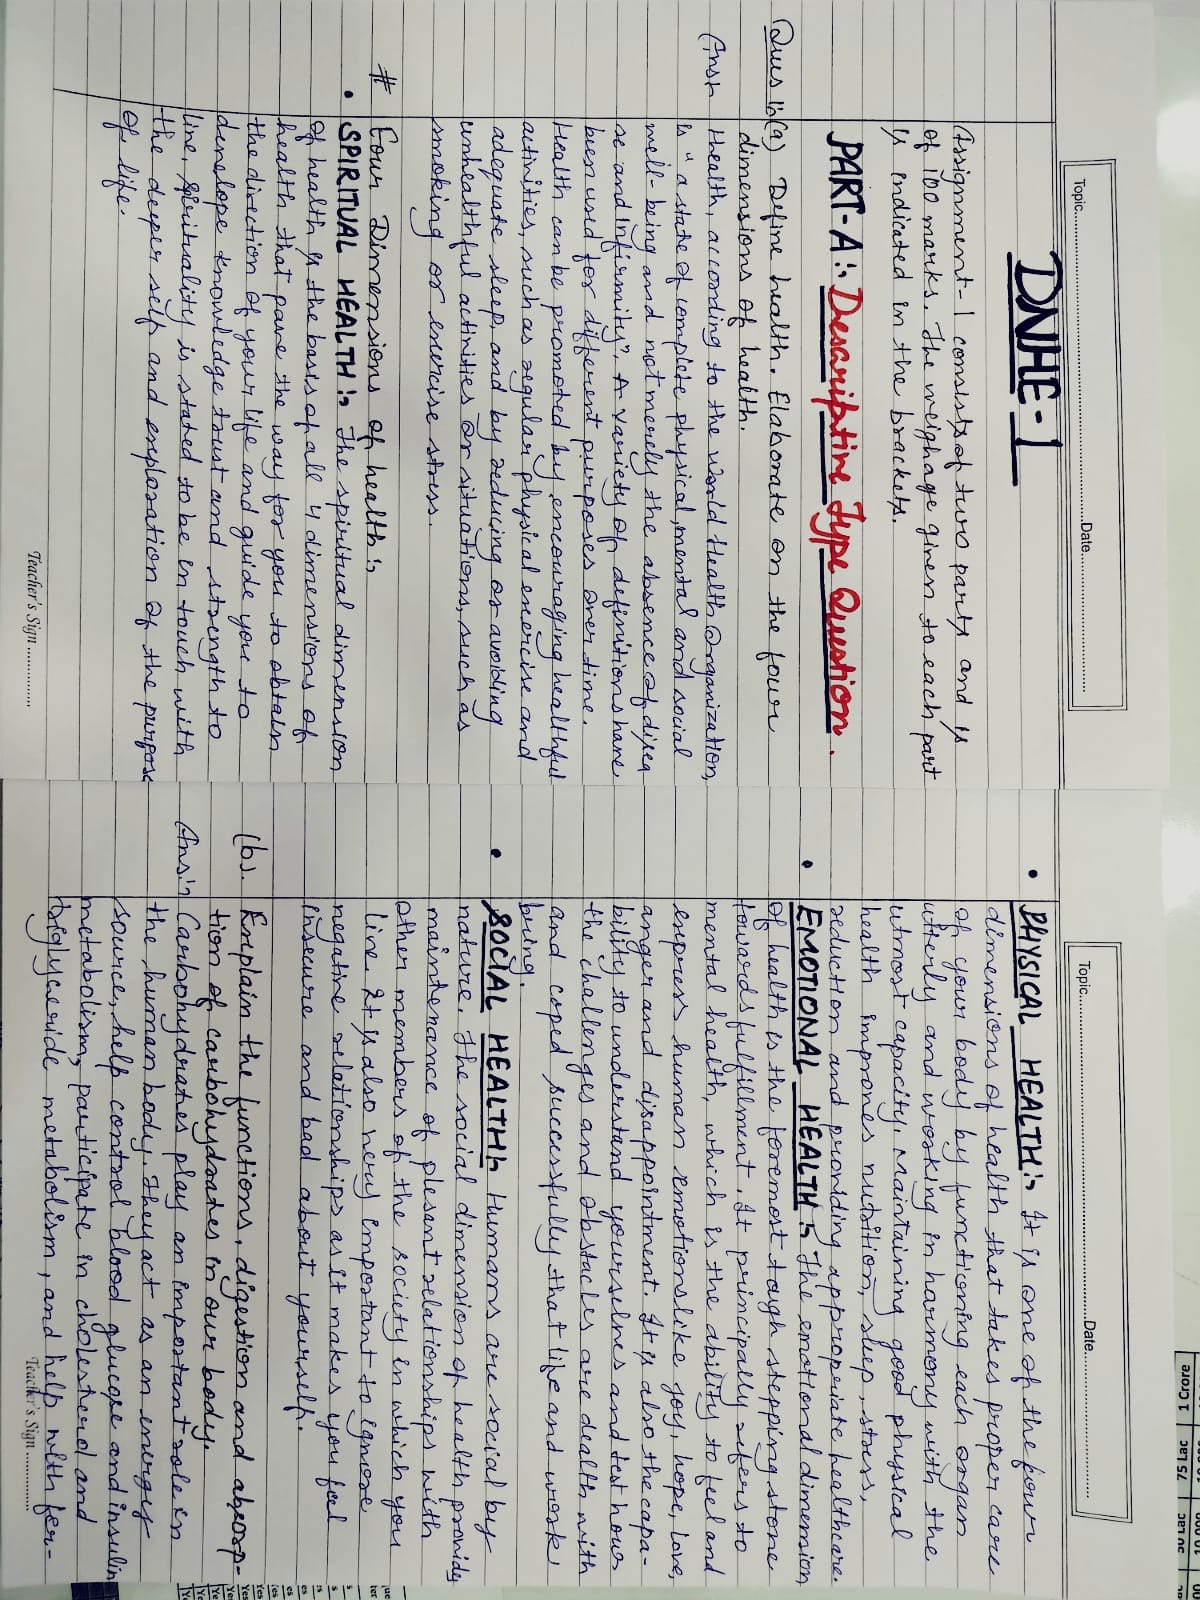 Topic..............................Date..............
DNHE-1
Assignment-1 consists of two parts and is
of 100 marks. The weighage given to each part
is indicated in the brackets.
PART-A:, Descriptive Type Question.
Ques 1,(a) Define health. Elaborate on the four
dimensions of health.
Ans, Health, according to the world Health Organization,
is "a state of complete physical, mental and social
well-being and not merely the absence of disea
se and Infirmity". A variety of definitions have
been used for different purposes over time.
Health can be promoted by encouraging healthful
activities, such as regular physical exercise and
adequate sleep, and by reducing or avoiding
unhealthful activities or situations, such as
smoking or exercise stress.
# Four Dimensions of health:,
• SPIRITUAL HEALTH:, The spiritual dimension
of health is the basis of all 4 dimensions of
health that pave the way for you to obtain
the direction of your life and guide you to
develope knowledge trust and strength to
line. Spirituality is stated to be in touch with
the deeper self and exploration of the purpose
of life.
Teacher's Sign..............
Topic..............................Date..............
• PHYSICAL HEALTH:, It is one of the four
dimensions of health that takes proper care
of your body by functioning each organ
utterly and working in harmony with the
utmost capacity. Maintaining good physical
health improves nutrition, sleep, stress,
reduction and providing appropriate healthare.
• EMOTIONAL HEALTH:, The emotional dimension
of health is the foremost tough stepping stone
towards fulfillment. It principally refers to
mental health, which is the ability to feel and
express human emotions like joy, hope, love,
anger and disappointment. It is also the capa-
bility to understand yourselves and test hows
the challenges and obstacles are dealth with
and coped successfully that life and work
bring.
• SOCIAL HEALTH, Humans are social by
nature. The social dimension of health provids
maintenance of plesent relationships with
other members of the society in which you
line. It is also very important to ignore
negative relationships as it makes you feel
insecure and bad about yourself.
(b). Explain the functions, digestion and absorp-
tion of carbohydrates in our body.
Ans:, Carbohydrates play an important role in
the human body. They act as an energy
source, help control blood glucose and insulin
metabolism, participate in cholesterol and
triglyceride metabolism, and help with fer-
Teacher's Sign..............
1 Crore
75 Lac
50 Lac
Yes
Yes
Yes
Yes
Yes